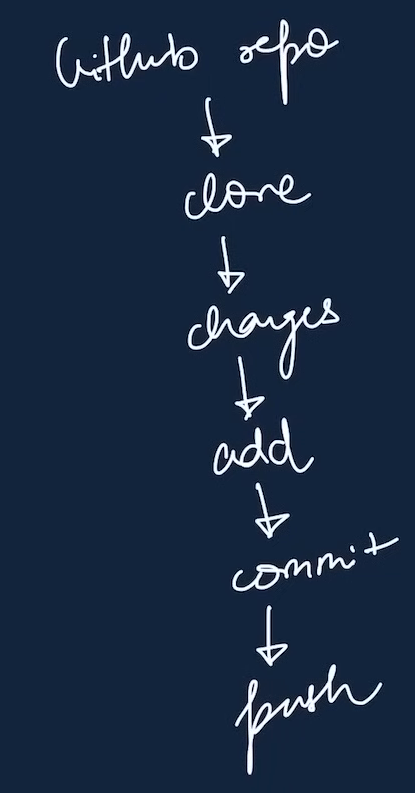 Github repo
clone
changes
add
commit
push